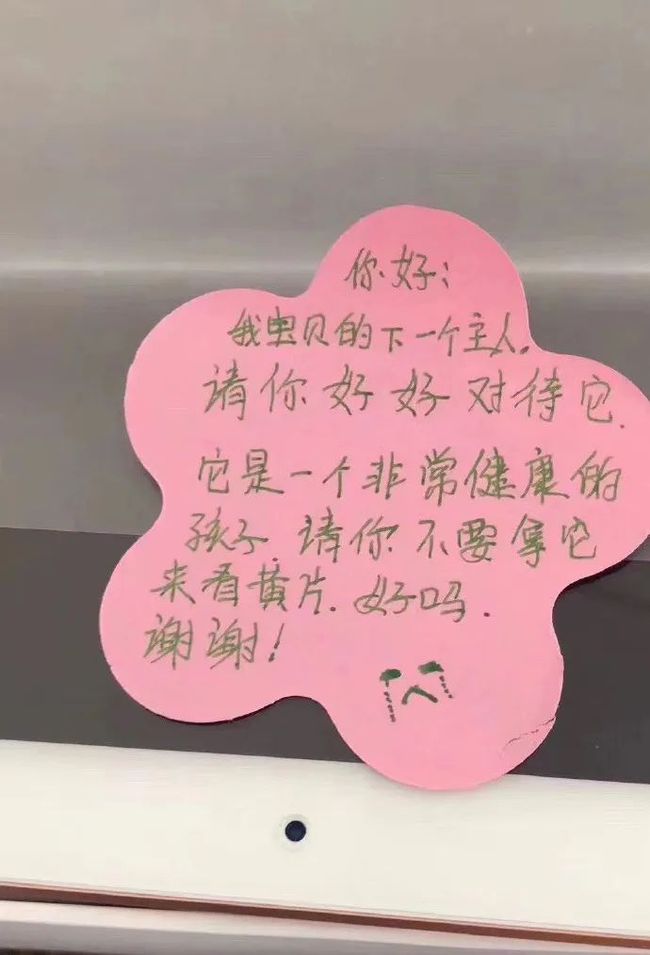 你好：
我宝贝的下一个主人，
请你好好对待它.
它是一个非常健康的
孩子.请你不要拿它
来看黄片.好吗.
谢谢！